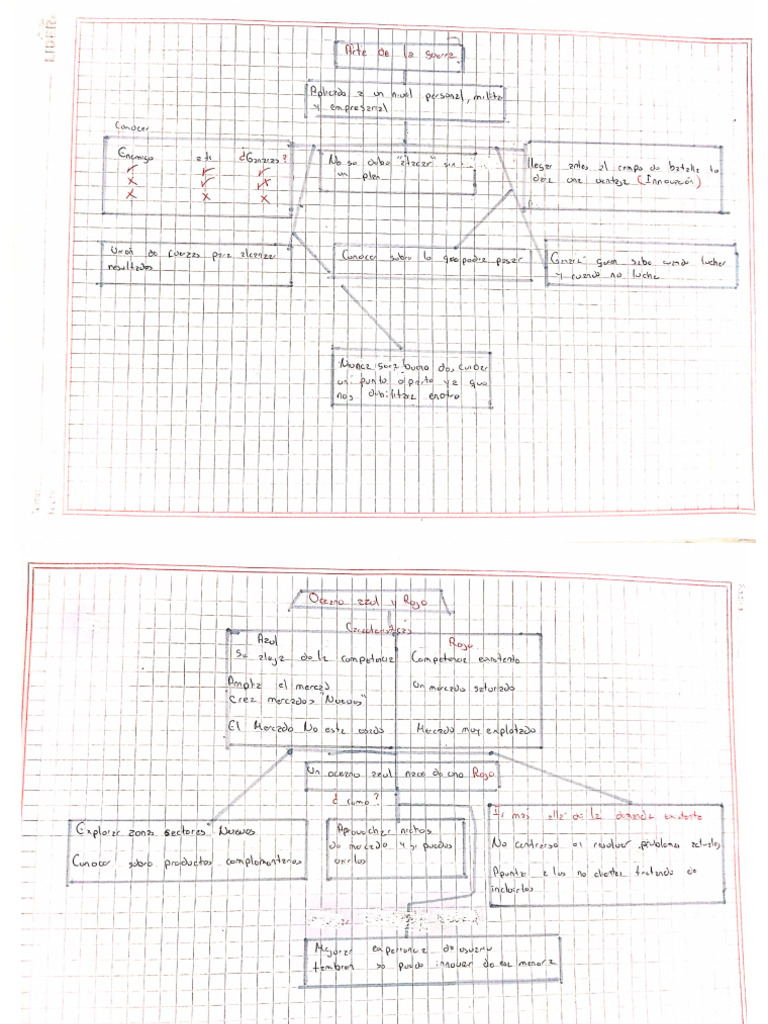 LIDER
Arte de la guerra
Aplicado a un nivel personal, militar
y empresarial
Conocer
Enemigo a ti ¿Ganaras?
✓ ✓ ✓
x ✓ x
x x x
No se debe "atacar" sin
un plan
llegar antes al campo de batalla te
dará una ventaja (Innovación)
Unión de fuerzas para alcanzar
resultados
Conocer sobre lo que podria pasar
Ganará quien sabe cuando luchar
y cuando no luchar
Nunca será bueno descuidar
un punto aparte ya que
nos debilitara en otro
Oceano azul y Rojo
Caracteristicas
Azul
Se aleja de la competencia
Amplia el mercado
Crea mercados "Nuevos"
El Mercado No esta usado
Rojo
Competencia existente
Un mercado saturado
Mercado muy explotado
Un oceano azul nace de uno Rojo
¿Como?
Explorar zonas sectores Nuevos
Conocer sobre productos complementarios
Aprovechar nichos
de mercado y si puedes
unirlos
Ir mas alla de la demanda existente
No centrarse en resolver problemas actuales
Apuntar a los no clientes tratando de
incluirlos
Mejorar experiencia de usuario
tambien se puede innovar de esa manera